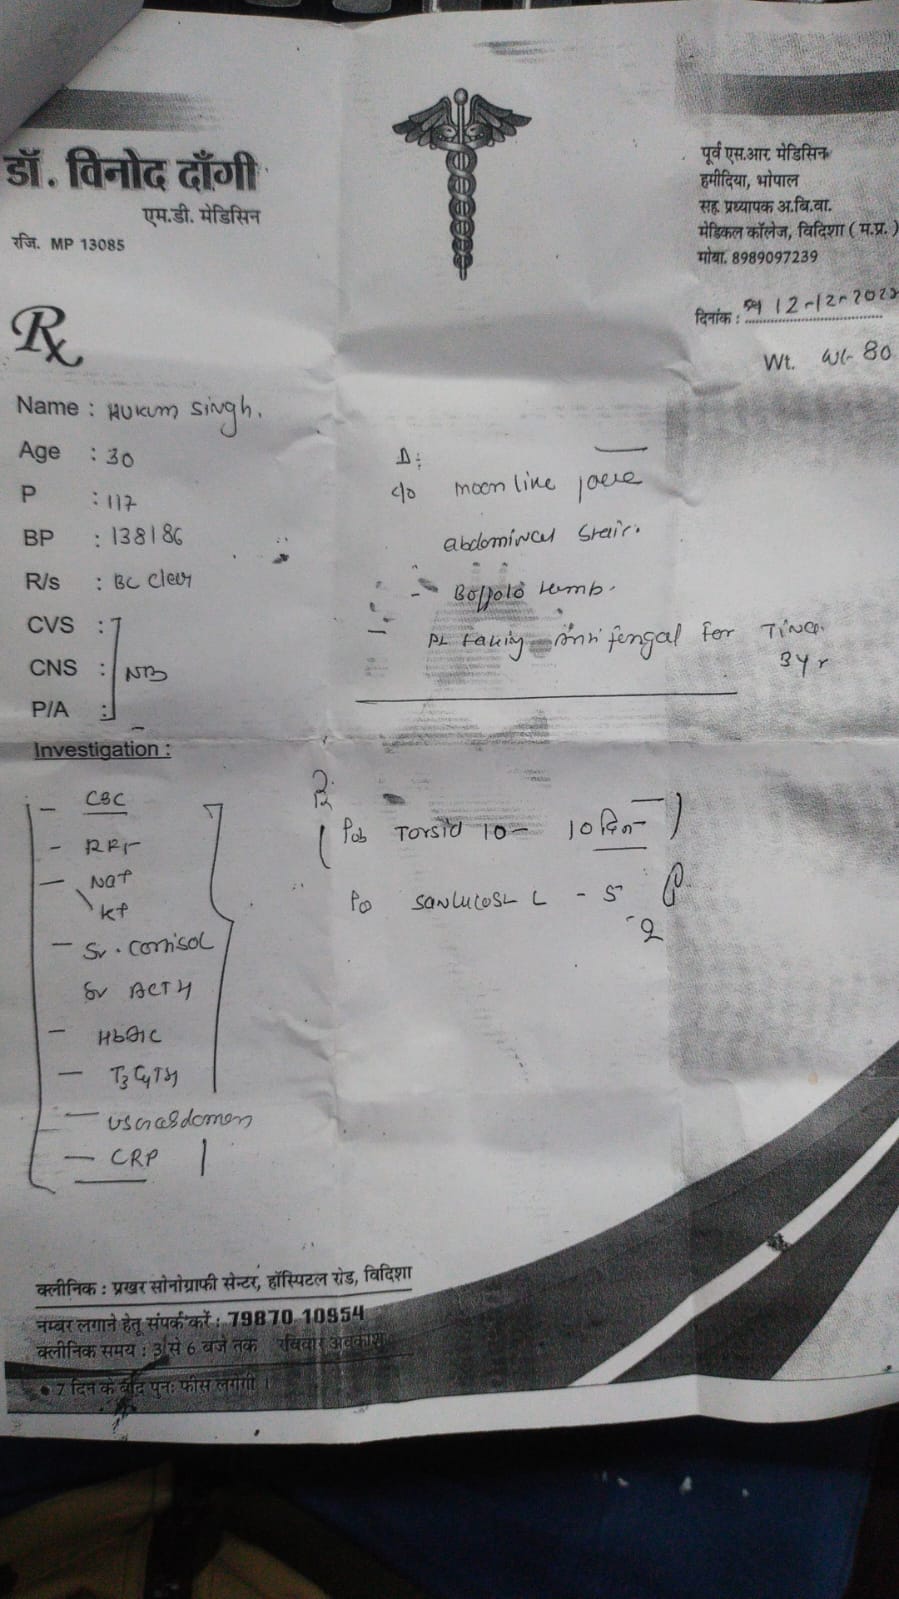 डॉ. विनोद दाँगी
एम.डी. मेडिसिन
रजि. MP 13085
पूर्व एस.आर. मेडिसिन
हमीदिया, भोपाल
सह प्रध्यापक अ.बि.वा.
मेडिकल कॉलेज, विदिशा ( म.प्र. )
मोबा. 8989097239
दिनांक : 12-12-202
Wt. 80
Rx
Name : Hukum Singh.
Age : 30
P : 117
BP : 138/86
R/s : BC Clear
CVS :
CNS :
P/A :
Δ:
c/o moon like
abdominal
Pt taking Anti fengal For Tinea
3yr
Investigation :
CBC
RFT
Na+
K+
Sr. Cortisol
Sr ACTH
HbA1C
T3 T4 TSH
CRP
Torsid 10 - 10 दिन
L - 5
क्लीनिक : प्रखर सोनोग्राफी सेन्टर, हॉस्पिटल रोड, विदिशा
नम्बर लगाने हेतु संपर्क करें : 79870 10954
क्लीनिक समय : 3 से 6 बजे तक रविवार अवकाश
• 7 दिन के बाद पुनः फीस लगेगी ।